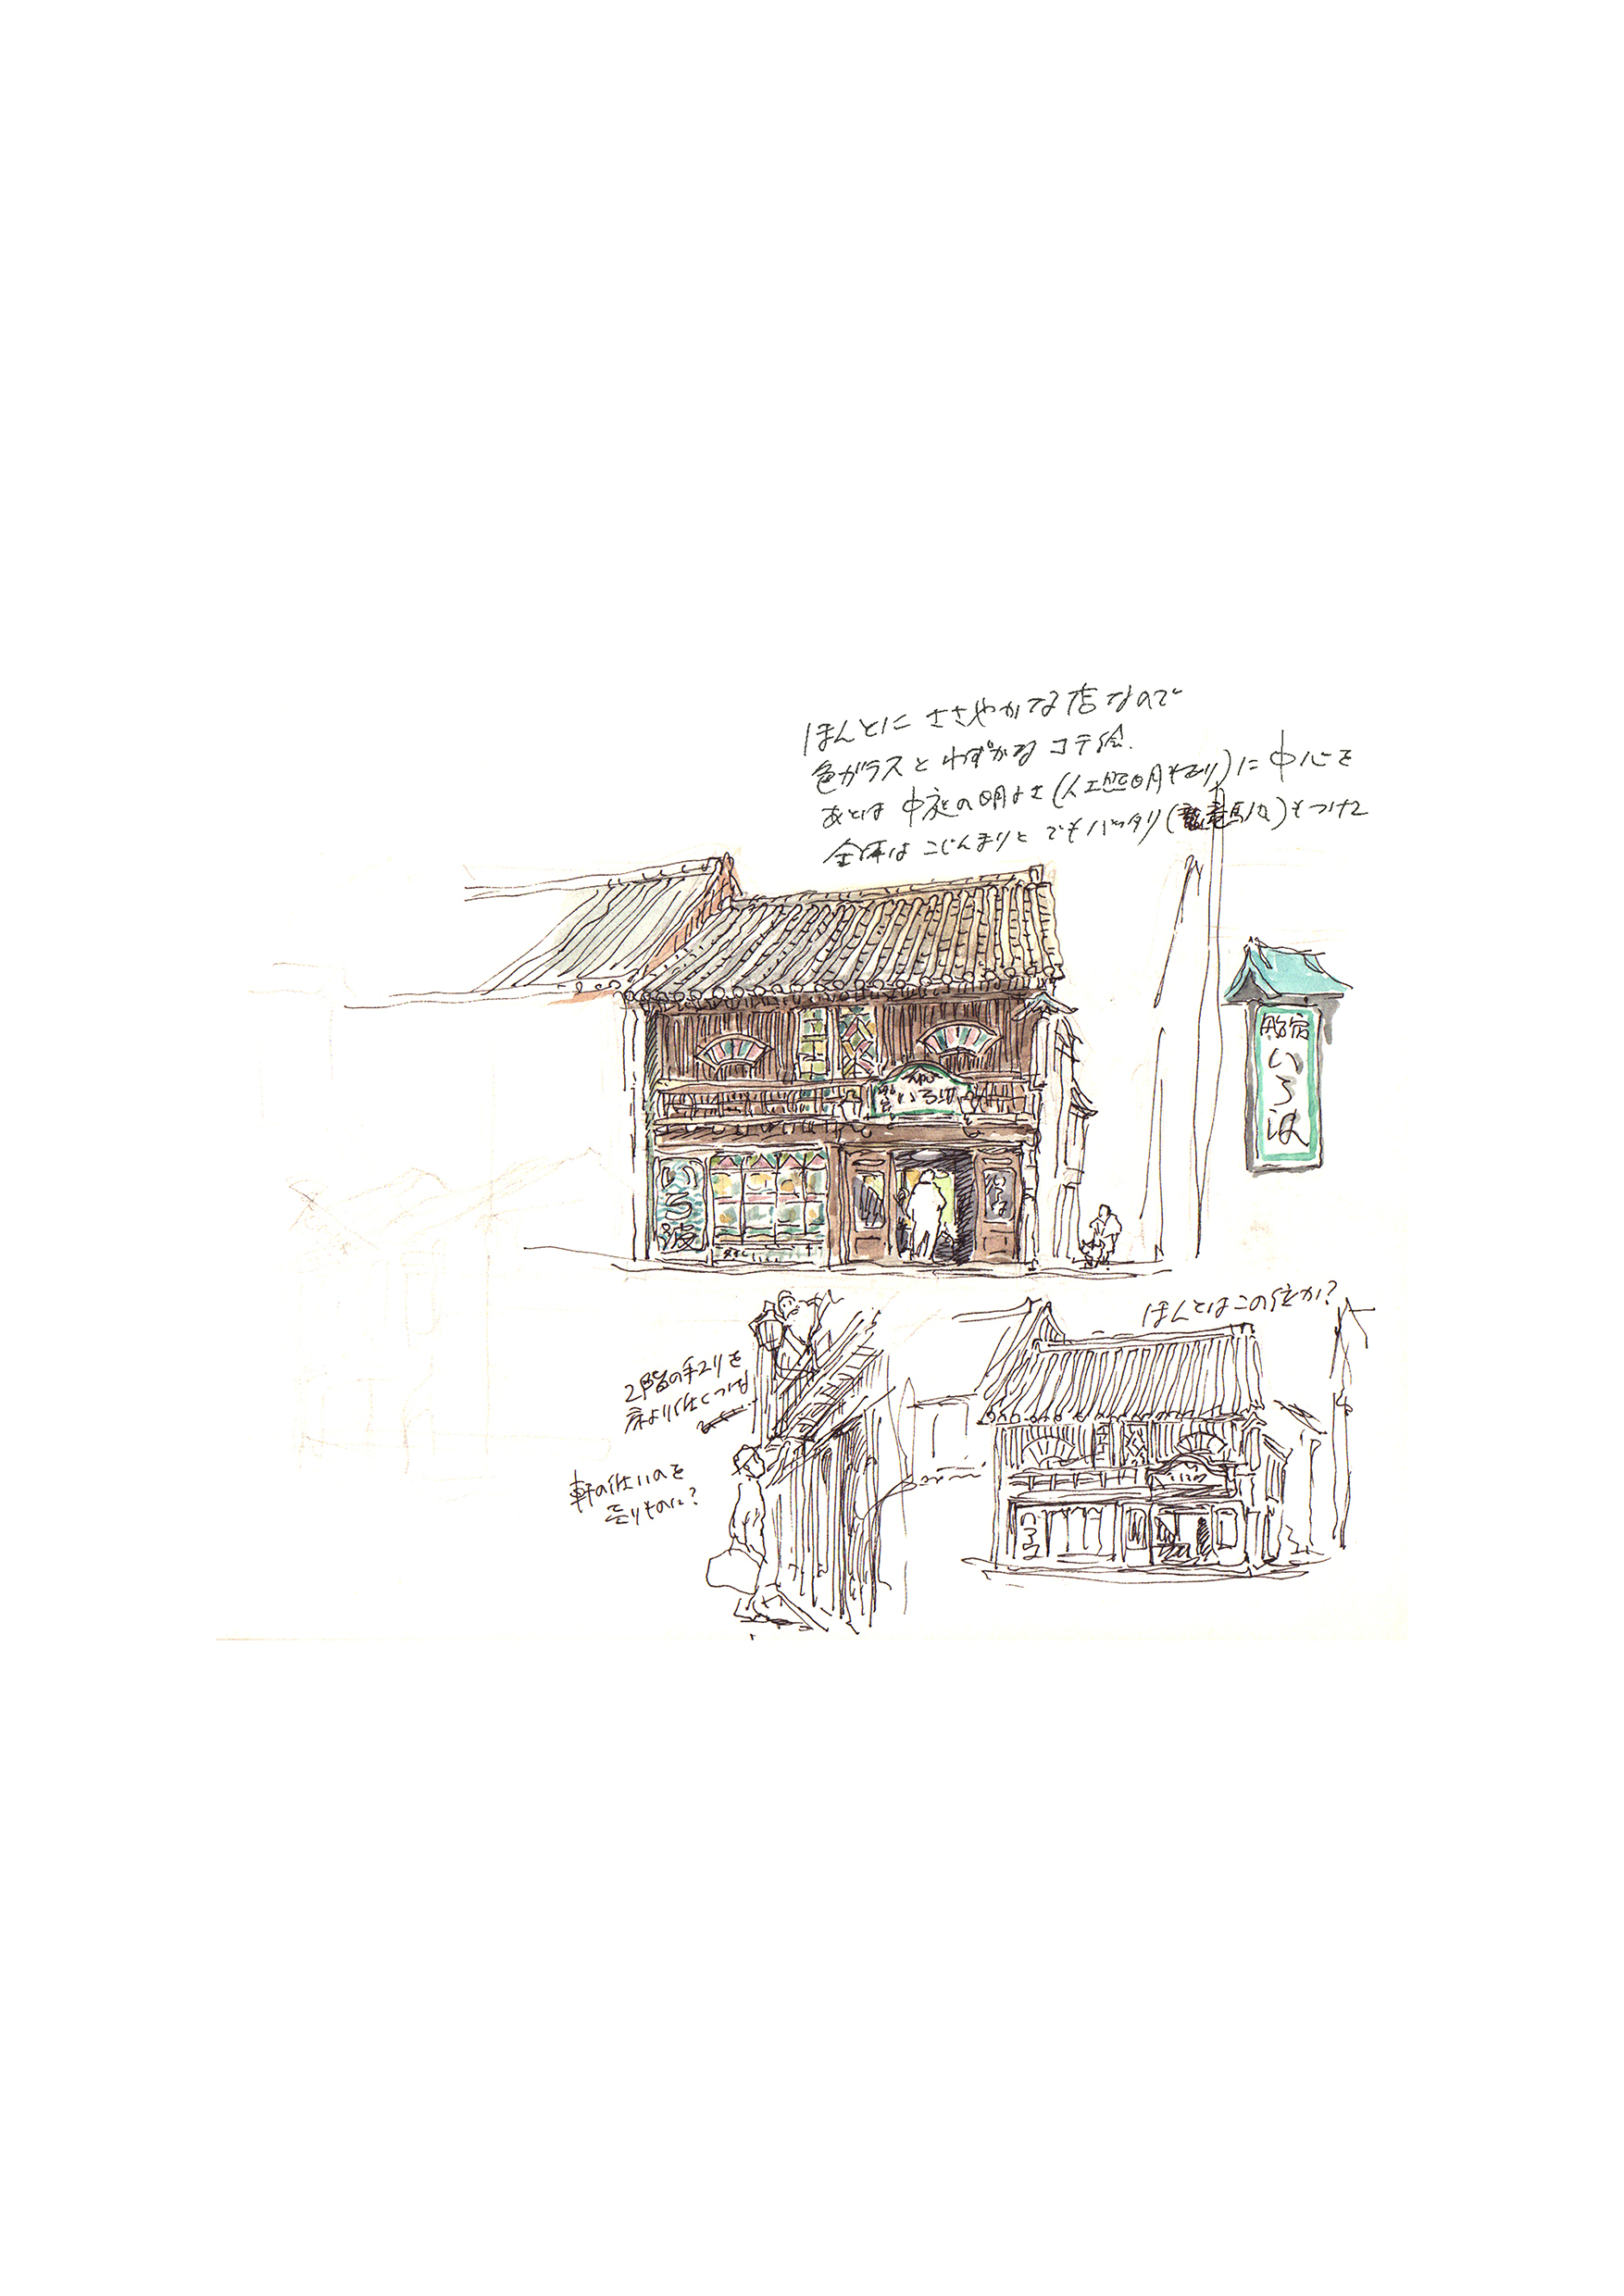 ほんとに ささやかな店なので
色ガラスと わずかな コテ絵.
あとは 中庭の明るさ(人工照明もあり)に中心を
全体は こじんまりと でもハッタリ(龍馬)もつけて
船宿
いろは
いろ波
いろ波
ほんとはこの位か?
2階の手スリを
床より低くつける
軒の低いのを
売りものに?
いろは
いろは